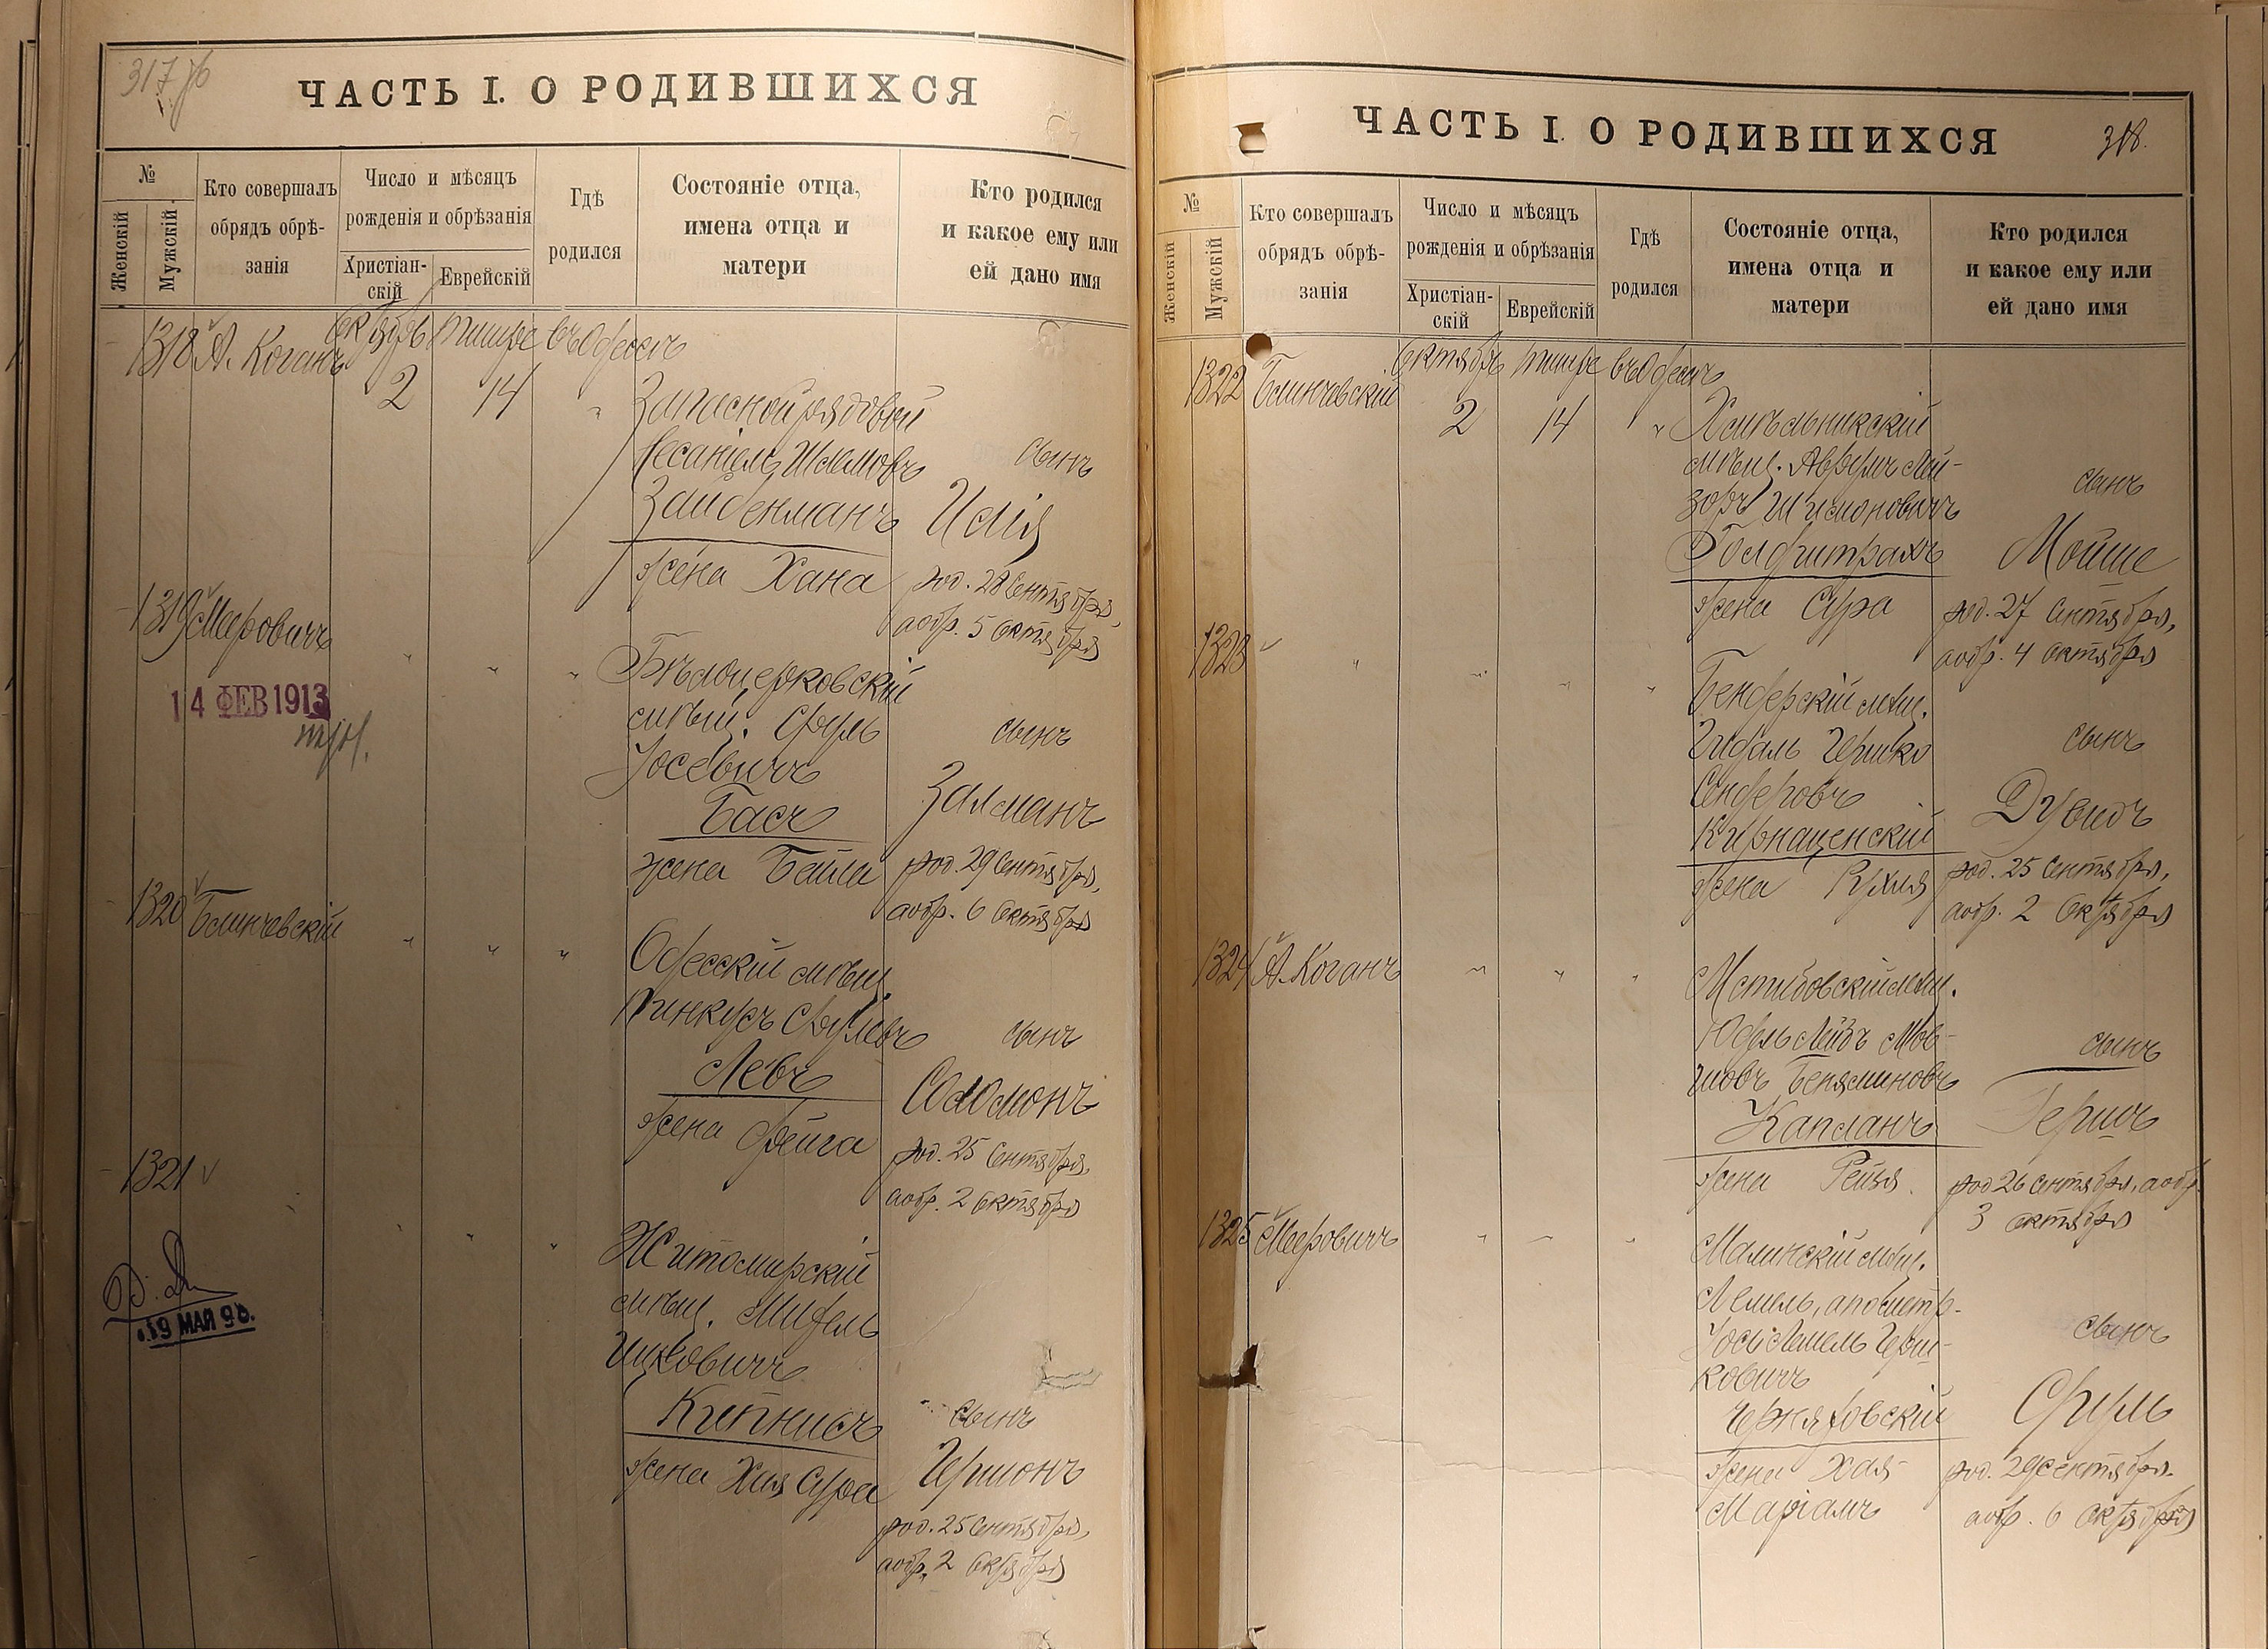 317 об
ЧАСТЬ I. О РОДИВШИХСЯ
№
Женскій
Мужскій
Кто совершалъ
обрядъ обрѣ-
занія
Число и мѣсяцъ
рожденія и обрѣзанія
Христіан-
скій
Еврейскій
Гдѣ
родился
Состояніе отца,
имена отца и
матери
Кто родился
и какое ему или
ей дано имя
1318 А. Коганъ Октябрь тишре въ Одессѣ
2 14 " Запасной рядовой
Шлемовъ сынъ
Зайденманъ Илія
жена Хана род. 28 Сентября,
а обр. 5 Октября
1319 Мееровичъ " " " Бѣлоцерковскій
14 ФЕВ 1913
мѣщ. Сруль сынъ
Іосевичъ
Басъ Залманъ
жена Байла род. 29 Сентября,
а обр. 6 Октября
1320 Блинчевскій " " " Одесскій мѣщ.
Пинкусъ Срулевъ сынъ
Левъ Соломонъ
жена Фейга род. 25 Сентября,
а обр. 2 Октября
1321
19 МАЯ 98.
" " " Житомирскій
мѣщ.
Ицковичъ
Кипнисъ сынъ
жена Хая Сура Гершонъ
род. 25 Сентября,
а обр. 2 Октября
ЧАСТЬ I. О РОДИВШИХСЯ
318.
№
Женскій
Мужскій
Кто совершалъ
обрядъ обрѣ-
занія
Число и мѣсяцъ
рожденія и обрѣзанія
Христіан-
скій
Еврейскій
Гдѣ
родился
Состояніе отца,
имена отца и
матери
Кто родился
и какое ему или
ей дано имя
1322 Блинчевскій Октябрь тишре въ Одессѣ
2 14 " Хмѣльникскій
мѣщ. Аврумъ Лей-
зоръ Шимоновичъ сынъ
Гольдштрахъ Мойше
жена Сура род. 27 Сентября,
а обр. 4 Октября
1323 " " " " Бендерскій мѣщ.
Гидаль Гершко сынъ
Сендеровъ
Кирнаценскій Дувидъ
жена Рухля род. 25 Сентября,
а обр. 2 Октября
1324 А. Коганъ " " " Мстибовскій мѣщ.
Юдель Лейбъ Мов- сынъ
шовъ Беняминовъ
Капланъ Гершъ
жена Рейзя род 26 Сентября, а обр.
3 Октября
1325 Мееровичъ " " " Малинскій мѣщ.
Лемель, а по метр.
Лемель Герш- сынъ
ковичъ
Черняховскій Сруль
жена Хая- род. 29 Сентября.
Маріамъ а обр. 6 Октября